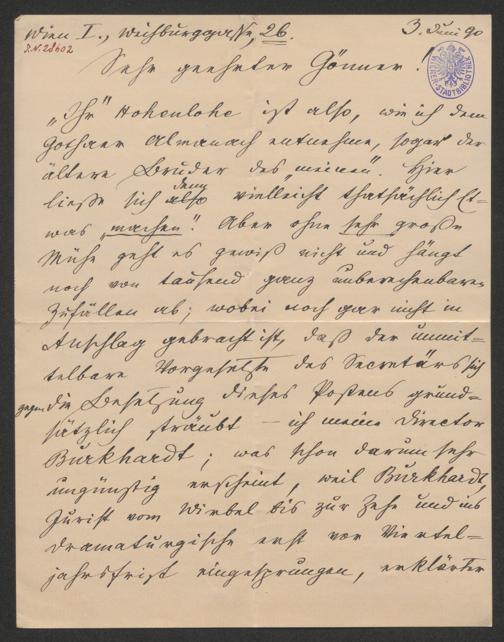 Wien I., Weihburggasse, 26.
3. Juni 90
I.N. 28602
WIENER STADTBIBLIOTHEK
Sehr geehrter Gönner!
„Ihr“ Hohenlohe ist also, wie ich dem
Gothaer Almanach entnehme, sogar der
ältere Bruder des „meinen“. Hier
ließe sich also denn vielleicht thatsächlich Et-
was „machen“. Aber ohne sehr große
Mühe geht es gewiß nicht und hängt
noch von tausend ganz unberechenbaren
Zufällen ab; wobei noch gar nicht in
Anschlag gebracht ist, daß der unmit-
telbare Vorgesetzte des Secretärs sich
gegen die Besetzung dieses Postens grund-
sätzlich sträubt — ich meine Director
Burkhardt; was schon darum sehr
ungünstig erscheint, weil Burkhardt
Jurist vom Wirbel bis zur Zehe und ins
Dramaturgische erst vor Viertel-
jahrsfrist eingesprungen, erklärter